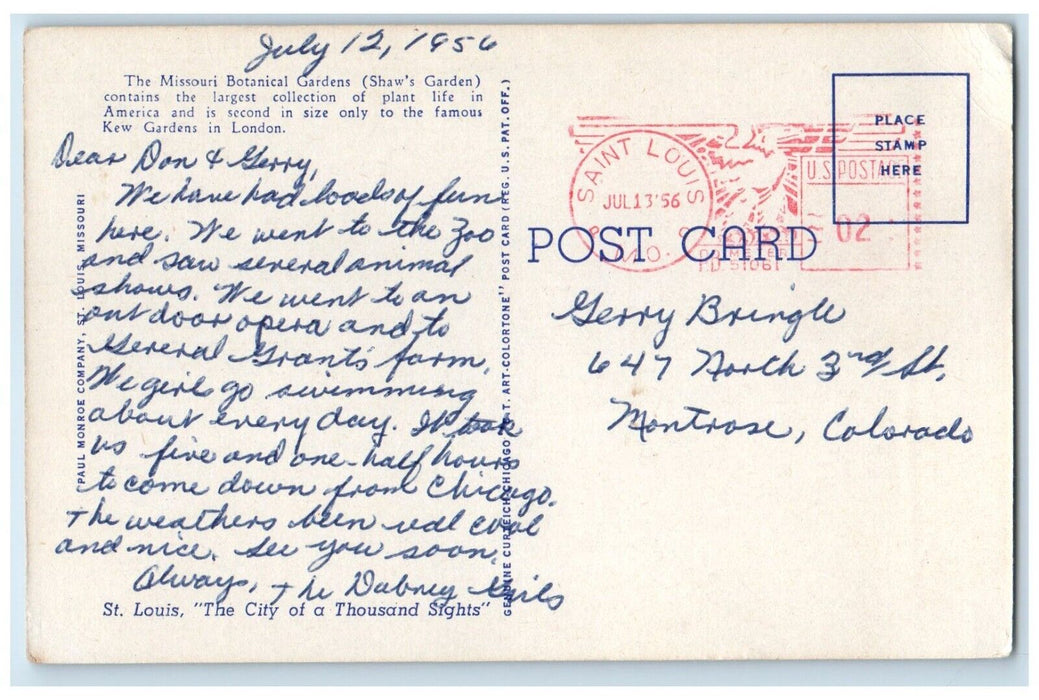 July 12, 1956
The Missouri Botanical Gardens (Shaw's Garden)
contains the largest collection of plant life in
America and is second in size only to the famous
Kew Gardens in London.
Dear Don & Gerry,
We have had loads of fun
here. We went to the Zoo
and saw several animal
shows. We went to an
out door opera and to
General Grant's farm.
We girls go swimming
about every day. It took
us five and one-half hours
to come down from Chicago.
The weathers been real cool
and nice. See you soon.
Always, The Dabney Girls
St. Louis, "The City of a Thousand Sights"
PAUL MONROE COMPANY, ST. LOUIS, MISSOURI
GENUINE CURTEICH-CHICAGO "C.T. ART-COLORTONE" POST CARD (REG. U.S. PAT. OFF.)
POST CARD
PLACE
STAMP
HERE
SAINT LOUIS
JUL 13 '56
MO.
U.S. POSTAGE
02
METER
51061
Gerry Bringle
647 North 3rd St.
Montrose, Colorado